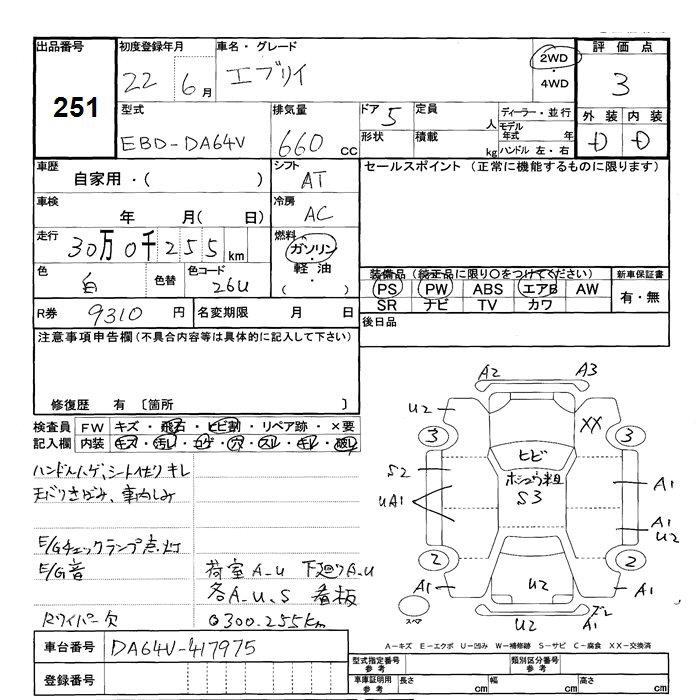 出品番号 初度登録年月 車名・グレード 評価点
251 22 6月 エブリイ 2WD ・ 4WD 3
型式 排気量 ドア 定員 ディーラー・並行 外装 内装
EBD-DA64V 660cc 5 人 モデル年式 年 D D
形状 積載 kg ハンドル 左・右
車歴 シフト セールスポイント (正常に機能するものに限ります)
自家用・( ) AT
車検 冷房
年 月( 日) AC
走行 燃料
30万0千255km ガソリン・軽油・( )
色 白 色替 色コード 26U
装備品 (純正品に限り○をつけてください) 新車保証書
PS PW ABS エアB AW 有・無
SR ナビ TV カワ
R券 9310円 名変期限 月 日 後日品
注意事項申告欄(不具合内容等は具体的に記入して下さい)
修復歴 有 〔箇所
検査員 FW キズ・飛石・ヒビ割・リペア跡・×要
記入欄 内装 キズ・汚レ・コゲ・穴・スレ・キレ・破レ
ハンドルハゲ、シート
E/Gチェックランプ点灯
E/G音 荷室A-U 下廻りA-U
各A-U、S 看板
Rワイパー欠 ◎300.255km
A2 A3
U2 XX
3 3
ヒビ
S2 S3 A1
UA1 A1
U2
2 2
A1 U2 A1
スペア U2 A1
A-キズ E-エクボ U-凹み W-補修跡 S-サビ C-腐食 XX-交換済
車台番号 DA64V-417975
登録番号
型式指定番号 参考 類別区分番号 参考
車庫証明用 参考 長さ cm 幅 cm 高さ cm